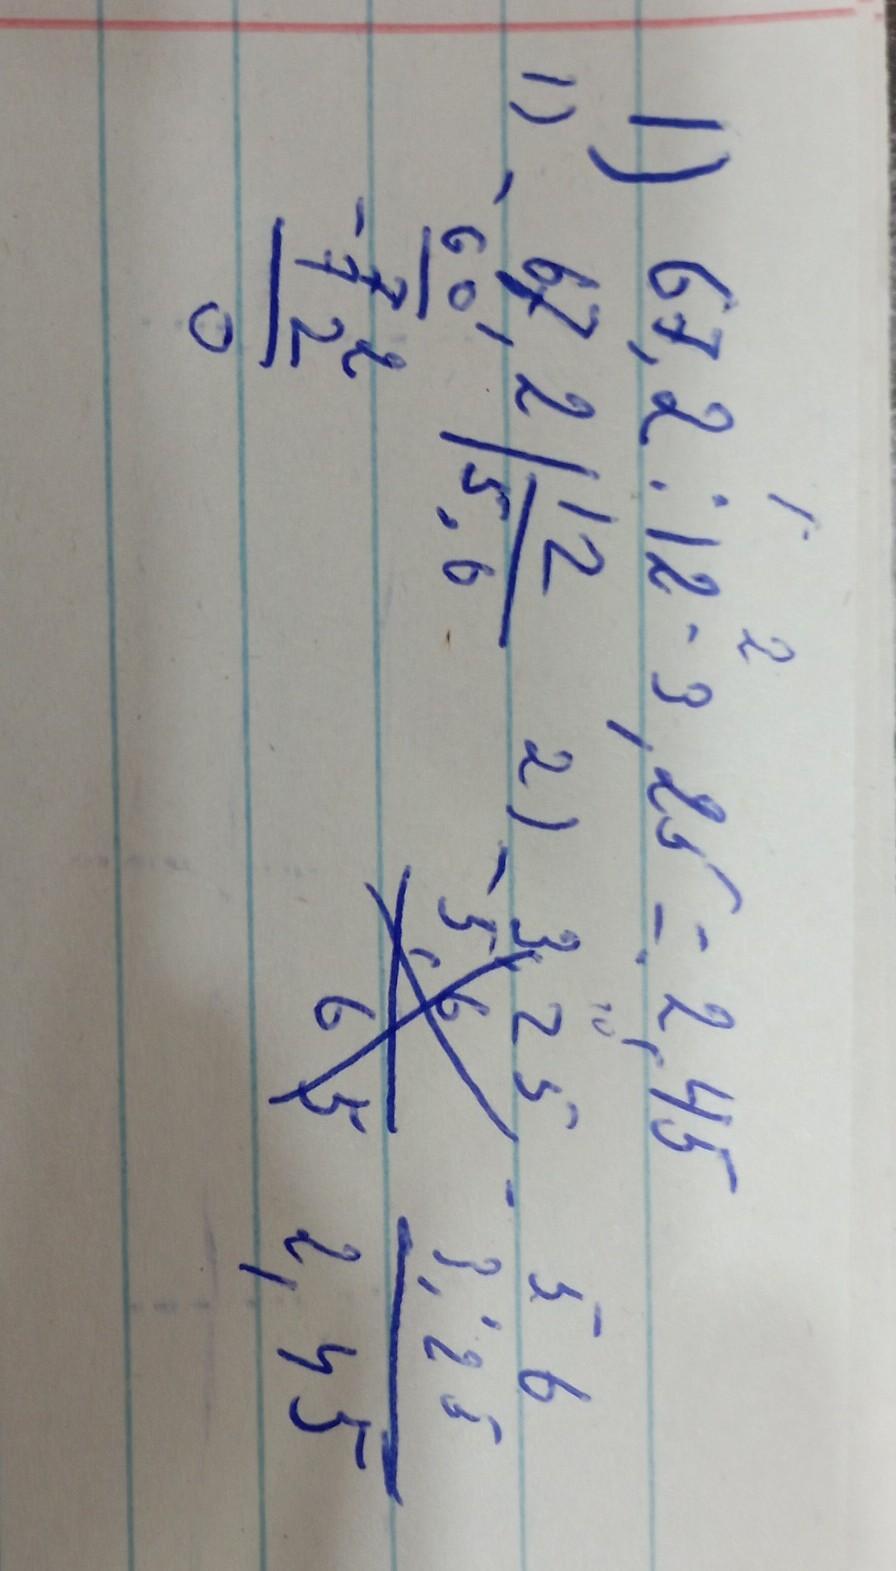 1) 67,2:12-3,25=2,45
1 2
1) 67,2 | 12
- 60, | 5,6
- 72
72
0
2) - 3,25
5,6
65
- 56
3,25
2,45